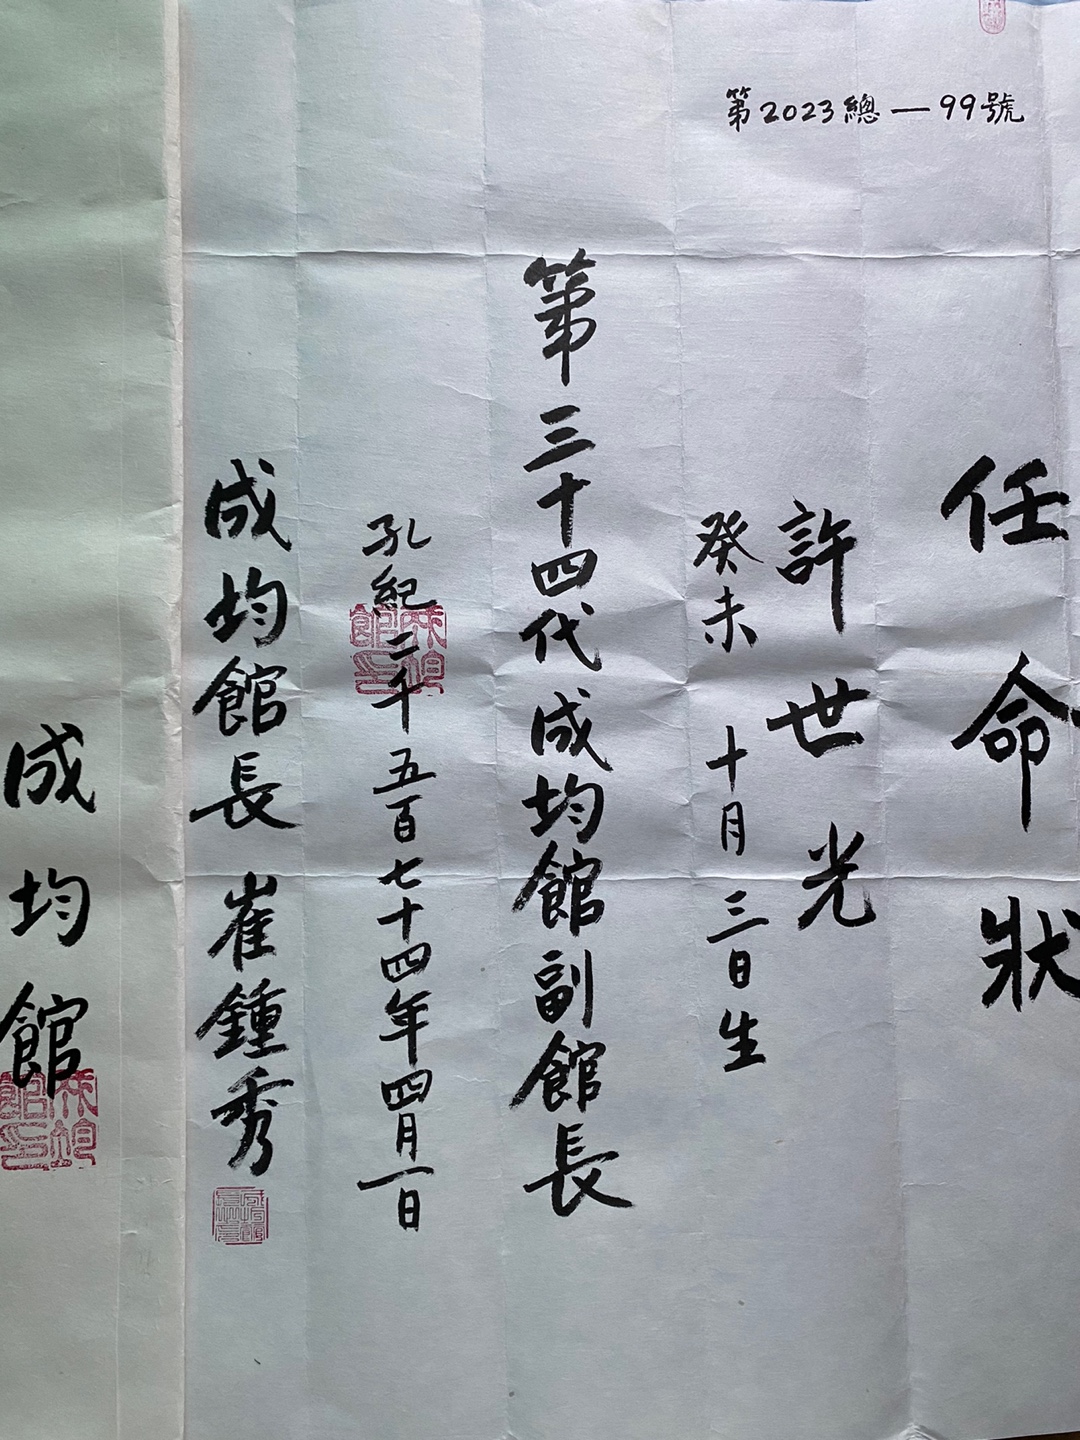 第2023總—99號
任命狀
許世光
癸未 十月 三日生
第三十四代 成均館副館長
孔紀二千五百七十四年四月一日
成均館長 崔鍾秀
成均館